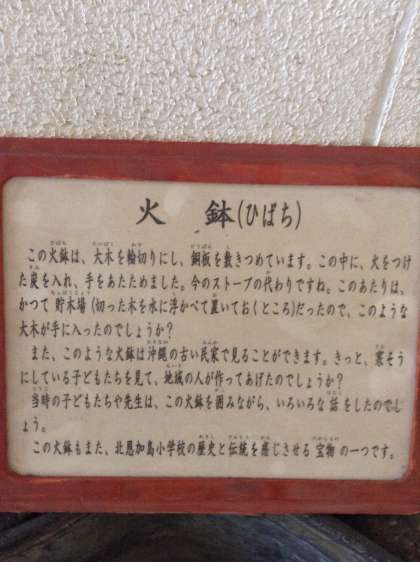 火鉢(ひばち)
この火鉢は、大木を輪切りにし、銅板を敷きつめています。この中に、火をつけ
た炭を入れ、手をあたためました。今のストーブの代わりですね。このあたりは、
かつて貯木場(切った木を水に浮かべて置いておくところ)だったので、このような
大木が手に入ったのでしょうか?
また、このような火鉢は沖縄の古い民家で見ることができます。きっと、寒そう
にしている子どもたちを見て、地域の人が作ってあげたのでしょうか?
当時の子どもたちや先生は、この火鉢を囲みながら、いろいろな話をしたのでし
ょう。
この火鉢もまた、北恩加島小学校の歴史と伝統を感じさせる宝物の一つです。